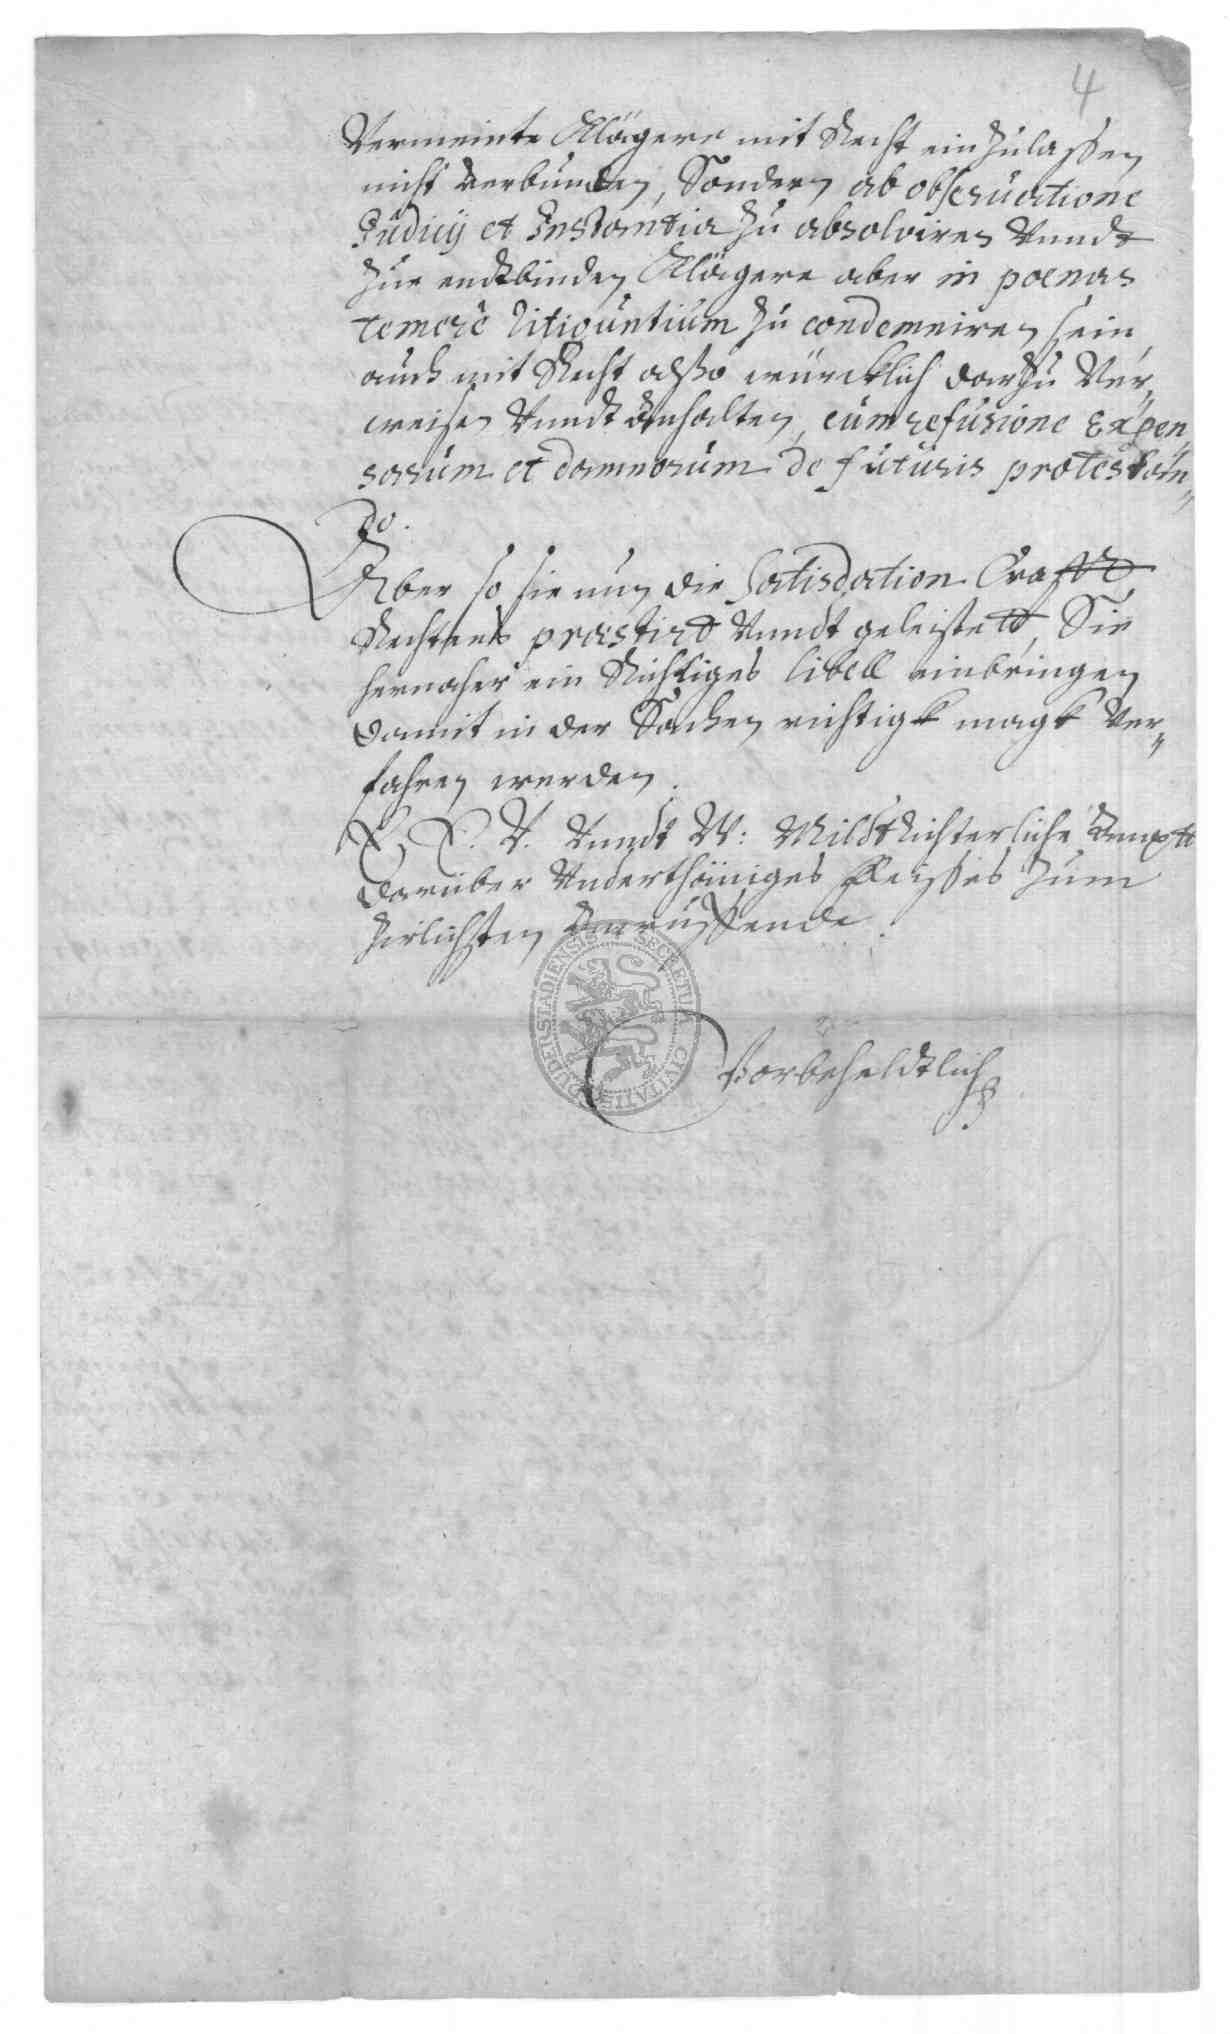 4
Vermeinte Klägere mit Recht ein zulassen
nicht verbunden, Sondern ab obseruatione
Judicij et Instantia zu absolviren Vnndt
zue endtbinden Klägere aber in poenas
temerè litigantium zu condemniren sein
auch mit Recht also würcklich darzu Ver,
weisen Vnndt anhalten, cum refusione Expen,
sarum et damnorum de futuris protestan„
do.
Aber so sie nun die Satisdation Crafft
Rechtens præstirt Vnndt geleistett, Sie
hernaher ein Richtiges libell einbringen
damit in der Sachen richtigk magk Ver„
fahren werden.
E. E. V. Vnndt W: Mildt Richterliche Ampt
darüber Underthäniges Fleisses Zum
zirlichsten Anruffende.
SECRETUM CIVITATIS DUDERSTADIENSIS
Vorbeheldtlich